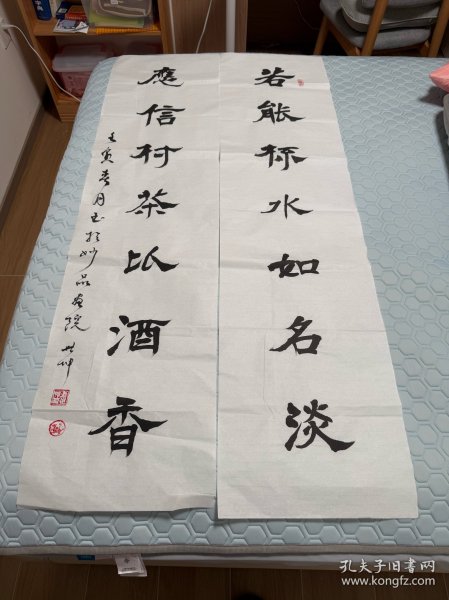 若能杯水如名淡
應信村茶比酒香
壬寅春月书於妙品画院
孔夫子旧书网
www.kongfz.com